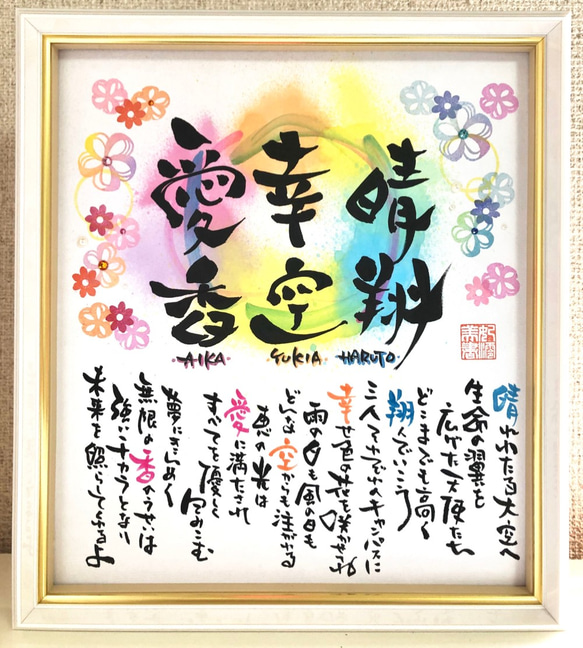 晴翔
幸空
愛香
HARUTO
YUKIA
AIKA
晴れわたる大空へ
生命の翼を
広げた天使たち
どこまでも高く
翔んでいこう
三人それぞれのキャンバスに
幸せ色の花を咲かせてね
雨の日も風の日も
どんな空からも注がれる
恵の光は
愛に満たされ
すべてを優しく包みこむ
夢にきらめく
無限の香のうせいは
強いチカラとなり
未来を照らしてくれるよ